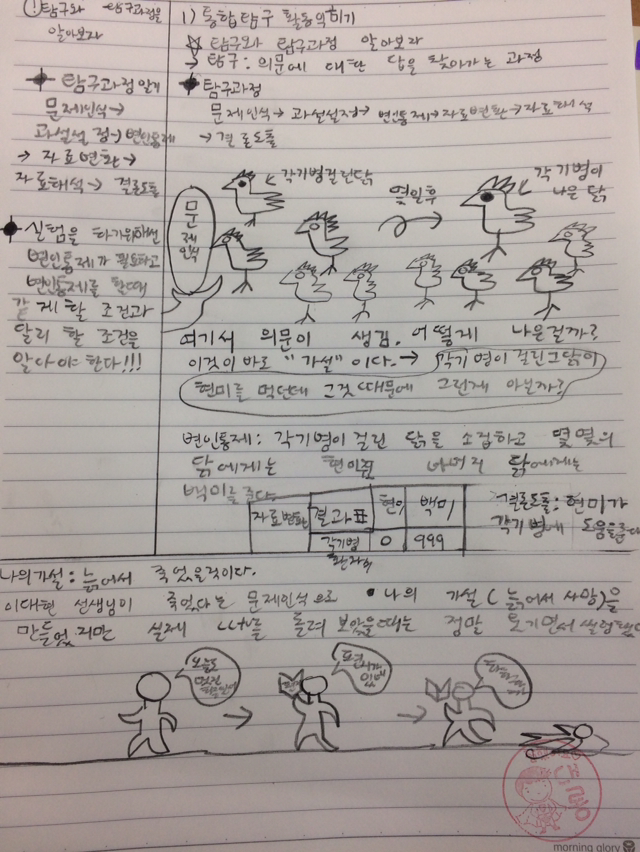 탐구와 탐구과정을
알아보자
탐구과정 알기
문제인식→
가설설정→변인통제
→ 자료변환→
자료해석→ 결론도출
실험을 하기위해선
변인통제가 필요하고
변인통제를 할때
같게 할 조건과
달리 할 조건을
알아야한다!!!
1) 통합탐구 활동익히기
탐구와 탐구과정 알아보자
→ 탐구: 의문에 대한 답을 찾아가는 과정
탐구과정
문제인식→ 가설설정→ 변인통제→자료변환→자료해석
→결론도출
각기병걸린닭
몇일후
각기병이
나은 닭
문제인식
여기서 의문이 생김. 어떻게 나은걸까?
이것이 바로 "가설"이다.→ 각기병이 걸린그닭이
현미를 먹던데 그것 때문에 그런게 아닐까?
변인통제: 각기병이 걸린 닭을 소집하고 몇몇의
닭에게는 현미를 나머지 닭에게는
백미를 준다.
자료변환 결과표 현미 백미
각기병 환자수 0 999
결론도출: 현미가
각기병에 도움을준다
나의가설: 늙어서 죽었을것이다.
이대현 선생님이 죽었다는 문제인식으로 나의 가설(늙어서 사망)을
만들었지만 실제 cctv를 돌려 보았을때는 정말 웃기면서
오늘도
멋진
morning glory